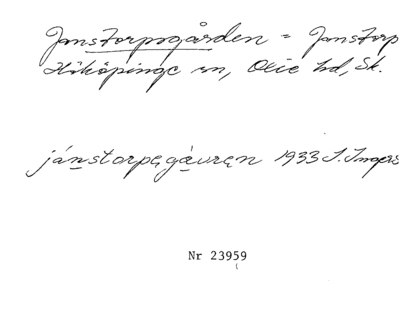 Janstorpsgården = Janstorp
Hököpinge sn, Oxie hd, Sk.
jánstorpęgávręn 1933 I. Ingers
Nr 23959